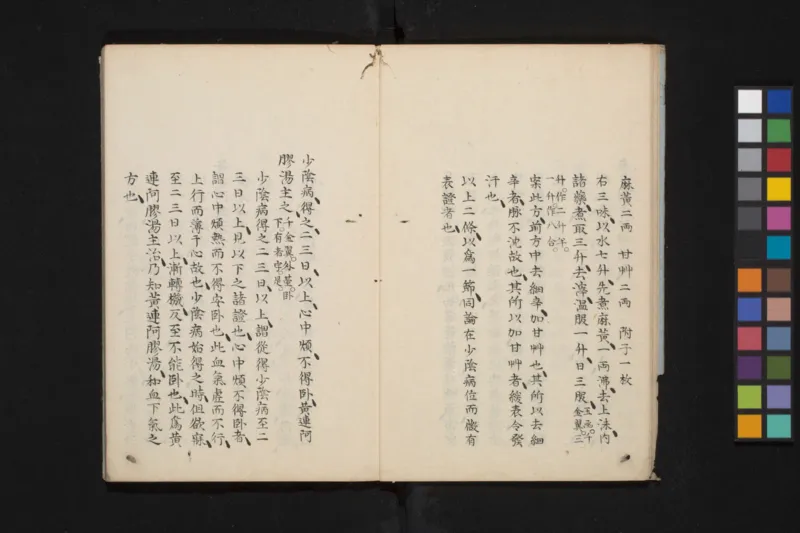 麻黃二兩　甘艸二兩　附子一枚
右三味以水七升先煮麻黃一兩沸去上沫内
諸藥煮取三升去滓溫服一升日三服
升作二升半
一升作八合
案此方前方中去細辛加甘艸也其所以去細
辛者脉不沈故也其所以加甘艸者緩表令發
汗也
以上二條以爲一節同論在少陰病位而微有
表證者也
少陰病得之二三日以上心中煩不得卧黃連阿
膠湯主之
少陰病得之二三日以上謂從得少陰病至二
三日以上見以下之諸證也心中煩不得卧者
謂心中煩熱而不得安卧也此血氣虛而不行
上行而薄于心故也少陰病始得之時但欲寐
至二三日以上漸轉機反至不能卧也此爲黃
連阿膠湯主治乃知黃連阿膠湯和血下氣之
方也